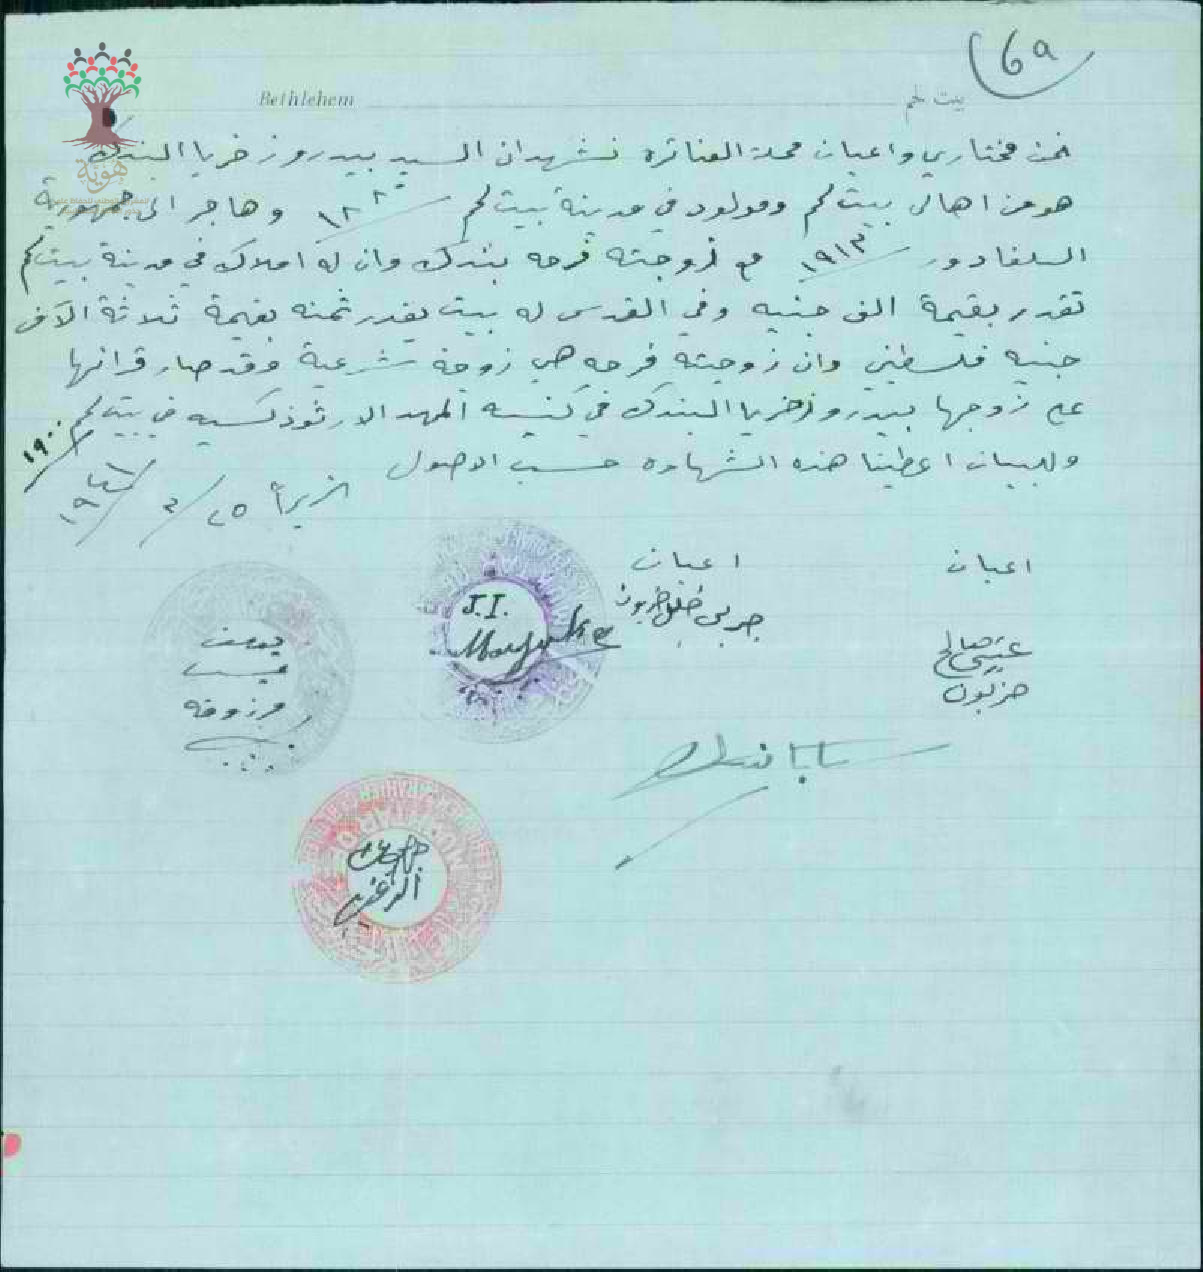 69
Bethlehem بيت لحم
هوية
نحن مختاري واعيان محلة العناتره نشهد ان السيد بيدرو زخريا البندك
هو من اهالي بيت لحم ومولود في مدينة بيت لحم وهاجر الى جمهورية
السلفادور ١٩١٣ مع زوجته فرحه بندك وان له املاك في مدينة بيت لحم
تقدر بقيمة الف جنيه وفي القدس له بيت يقدر ثمنه بقيمة ثلاثة الآف
جنيه فلسطيني وان زوجته فرحه هي زوجة شرعية وقد صار قرانها
على زوجها بيدرو زخريا البندك في كنيسه المهد الارثوذكسيه في بيت لحم ١٩٠٠
وللبيان اعطينا هذه الشهاده حسب الاصول
تحريراً ٢٥/
اعيان
عيسى صالح
حزبون
اعيان
J.I.
يوسف
عيسى
مرزوقه